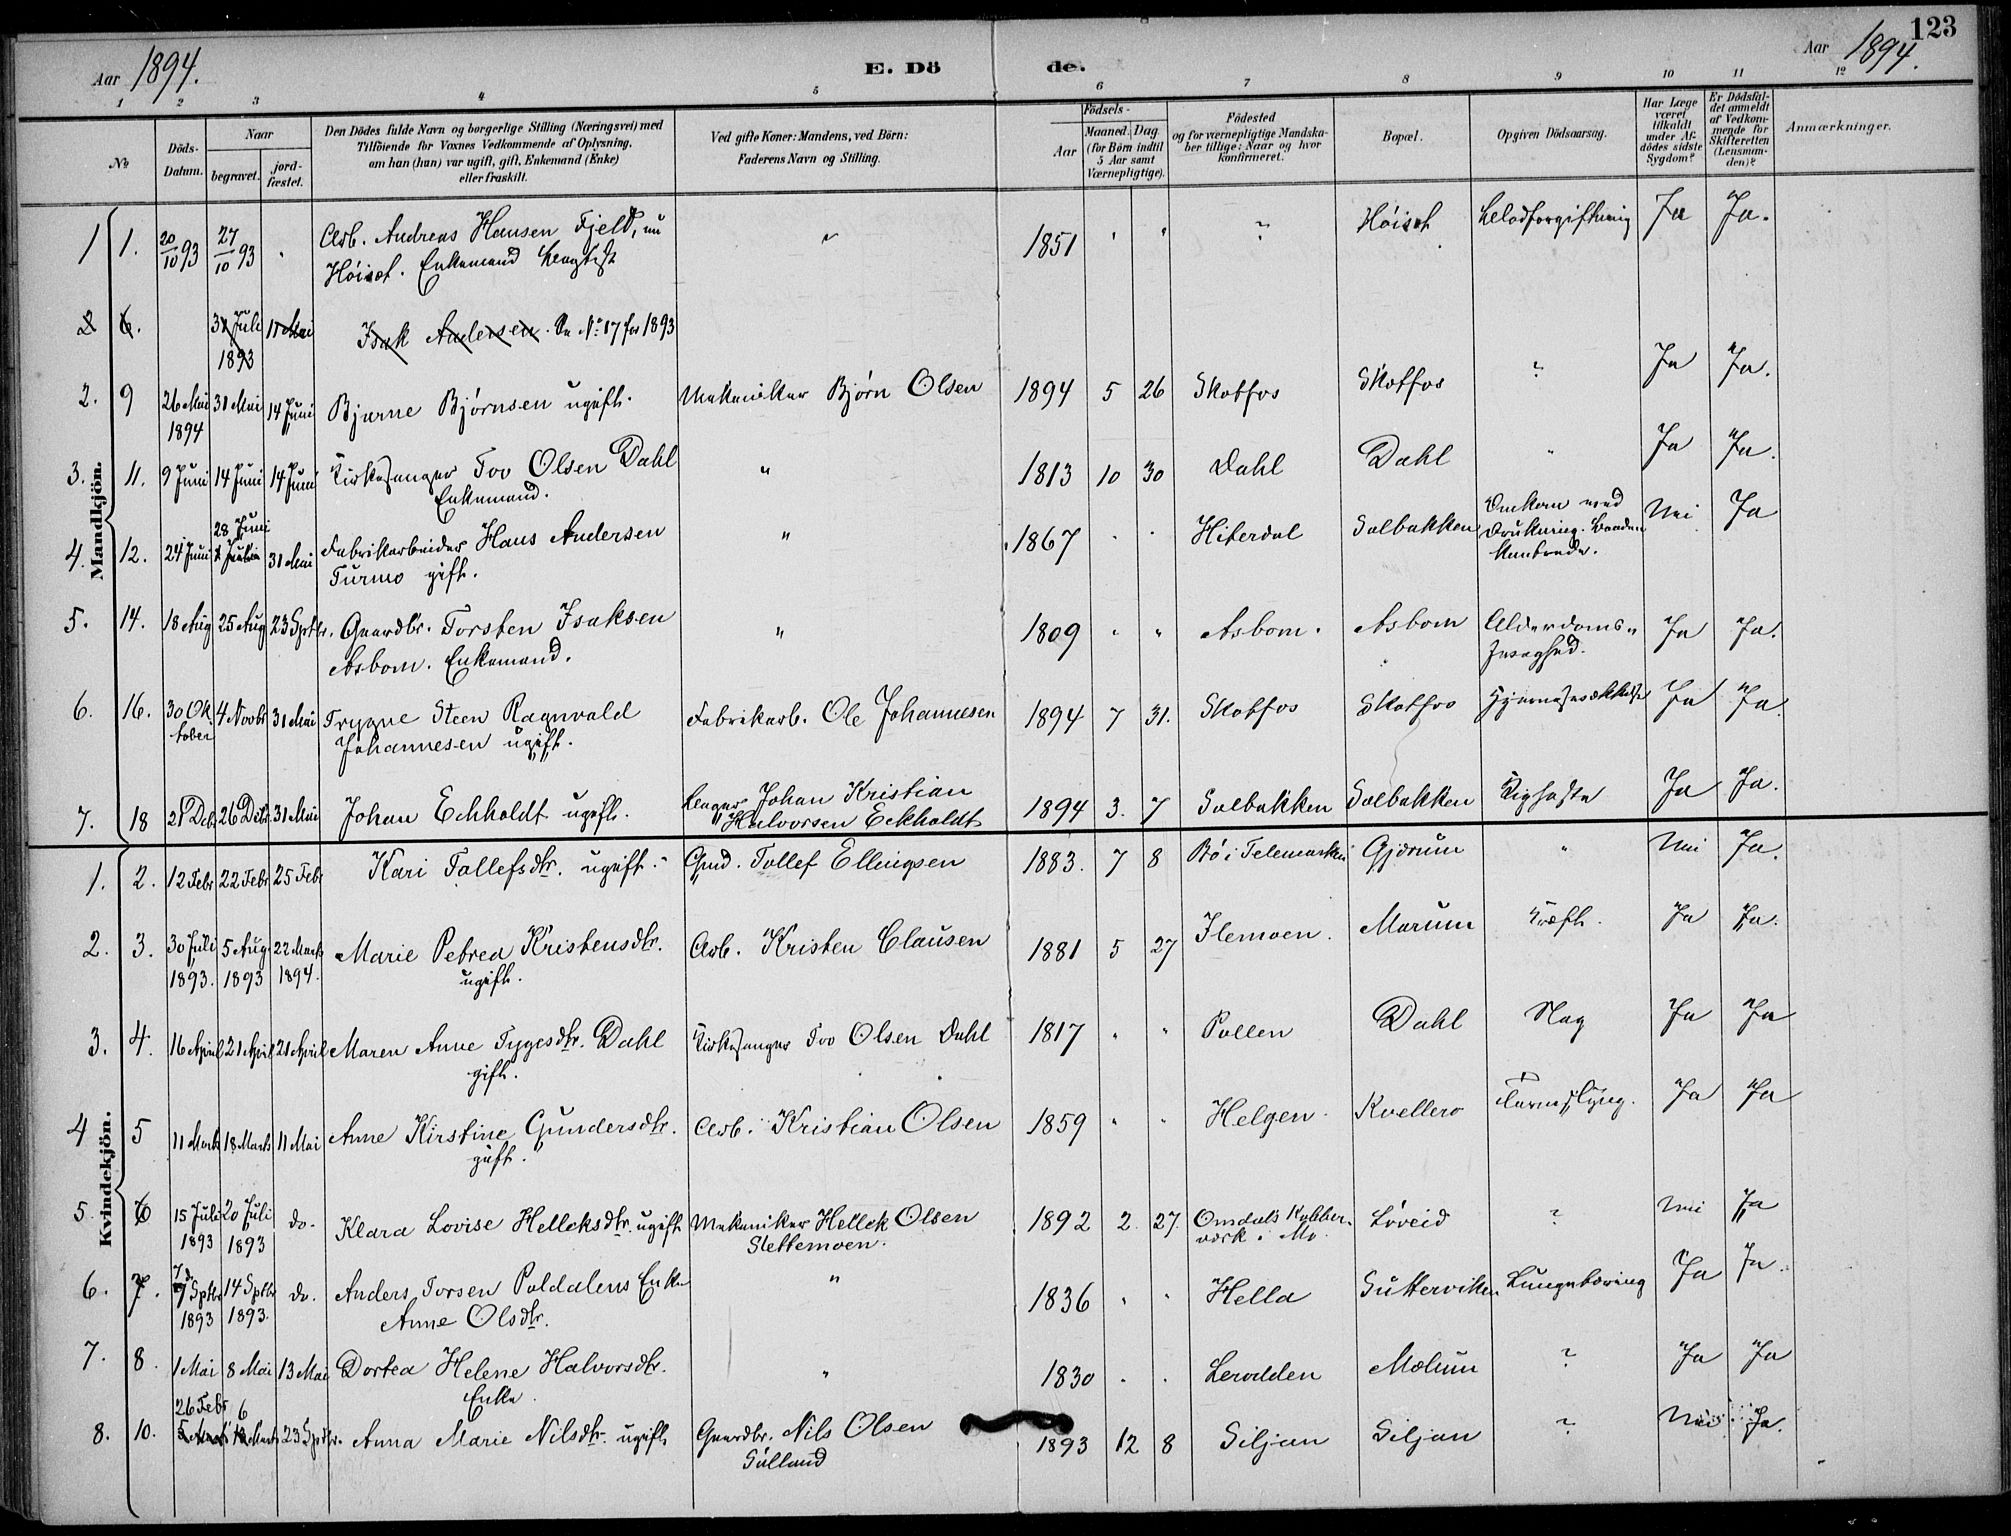 123
Aar 1894.
E. Dö de.
Aar 1894.
1 2 3 4 5 6 7 8 9 10 11 12
No
Döds-Datum.
Naar
begravet.
jord-fæstet.
Den Dödes fulde Navn og borgerlige Stilling (Næringsvei) med
Tilföiende for Voxnes Vedkommende af Oplysning,
om han (hun) var ugift, gift, Enkemand (Enke)
eller fraskilt.
Ved gifte Koner: Mandens, ved Börn:
Faderens Navn og Stilling.
Födsels-
Aar
Maaned. Dag
(for Börn indtil
5 Aar samt
Værnepligtige).
Födested
og for værnepligtige Mandska-
ber tillige: Naar og hvor
konfirmeret.
Bopæl.
Opgiven Dödsaarsag.
Har Læge
været
tilkaldt
under Af-
dödes sidste
Sygdom?
Er Dödsfal-
det anmeldt
af Vedkom-
mende for
Skifteretten
(Lensman-
den)?
Anmærkninger.
Mandkjön.
1 1. 20/10 93 27/10 93 Arb. Andreas Hansen Fjeld, nu " 1851 " " ? Höiset Blodforgiftning Ja Ja.
Höiset. Enkemand
2 6. 31 Juli 1893 11 Mai Isak Andersen. Se No 17 for 1893
2. 9 26 Mai 1894 31 Mai 14 Juni Bjarne Bjørnsen ugift. Mekaniker Bjørn Olsen 1894 5 26 Skotfos Skotfos ? Ja Ja.
3. 11. 9 Juni 14 Juni 14 Juni Kirkesanger Tov Olsen Dahl " 1813 10 30 Dahl Dahl " Ja Ja.
Enkemand.
4. 12. 24 Juni 28 Juni 31 Mai Fabrikarbeider Hans Andersen " 1867 . . Hiterdal Solbakken Omkom ved Nei Ja
Turmo gift. Drukning. Baaden
kantrede.
5. 14. 18 Aug 25 Aug 23 Sptbr. Gaardbr. Torsten Isaksen " 1809 " " Asbom. Asbom Alderdoms- Ja Ja.
Asbom. Enkemand. svaghed.
6. 16. 30 Oktober 4 Novbr 31 Mai Trygve Steen Ragnvald Fabrikarb. Ole Johannesen 1894 7 31. Skotfos Skotfos Ja Ja.
Johannesen ugift.
7. 18 21 Dcb. 26 Dcbr. 31 Mai Johan Eckholdt ugift. Johan Kristian 1894 3. 7 Solbakken Solbakken Kighoste Ja Ja.
Halvorsen Eckholdt
Kvindekjön.
1. 2. 12 Febr 22 Febr 25 Febr Kari Tollefsdtr. ugift. Gmd. Tollef Ellingsen 1883. 7 8 Bö i Telemarken Gjærum " Nei Ja.
2. 3. 30 Juli 1893. 5 Aug 1893 22 Marts 1894. Marie Petrea Kristensdtr. Arb. Kristen Clausen 1881 5 27 Ilemoen. Mærum Kræft. Ja Ja.
ugift.
3. 4. 16 April 21 April 21 April Maren Anne Tygesdtr. Dahl Kirkesanger Tov Olsen Dahl 1817 " " Pollen Dahl Slag Ja Ja
gift.
4 5 11 Marts 18 Marts 11 Mai Anne Kirstine Gundersdtr. Arb. Kristian Olsen 1859 " " Helgen Kvellero Tarmslyng. Ja Ja
gift.
5. 6 15 Juli 1893 20 Juli 1893 do. Klara Lovise Helleksdtr. ugift Mekaniker Hellek Olsen 1892 2 27. Omdals Kobber- Löveid ? Nei Ja
Slettemoen. værk i Mo.
6. 7. 7 Sptbr 1893 14 Sptbr 1893. do. Anders Torsen Poldalens Enke " 1836 " " Hella Gutterviken Lungetæring Ja Ja.
Anne Olsdtr.
7. 8. 1 Mai 8 Mai 13 Mai Dortea Helene Halvorsdtr. " 1830 . . Lerodden Mælum ? Ja Ja
Enke.
8. 10. 26 Febr 6 Marts 23 Sptbr. Anna Marie Nilsdtr. ugift Gaardbr. Nils Olsen 1893 12 8 Siljan Siljan ? Nei Ja.
Gulland